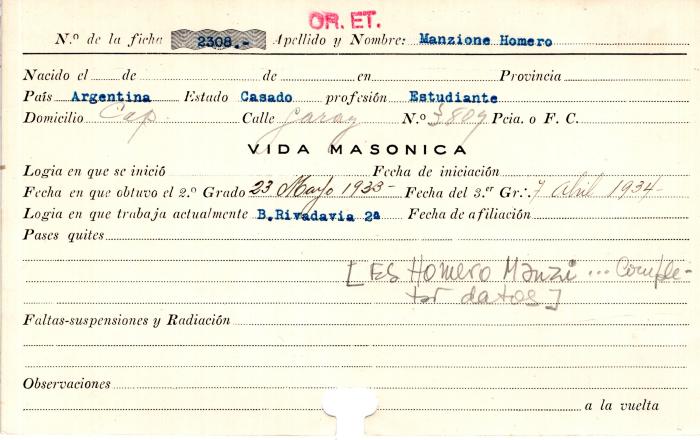 OR. ET.
N.º de la ficha 2308.- Apellido y Nombre: Manzione Homero
Nacido el de de en Provincia
País Argentina Estado Casado profesión Estudiante
Domicilio Cap. Calle Garay N.º 3809 Pcia. o F. C.
VIDA MASONICA
Logia en que se inició Fecha de iniciación
Fecha en que obtuvo el 2.º Grado 23 Mayo 1933- Fecha del 3.er Gr∴ 7 Abril 1934-
Logia en que trabaja actualmente B.Rivadavia 2ª Fecha de afiliación
Pases quites
[Es Homero Manzi ... comple-
tar datos]
Faltas-suspensiones y Radiación
Observaciones
a la vuelta